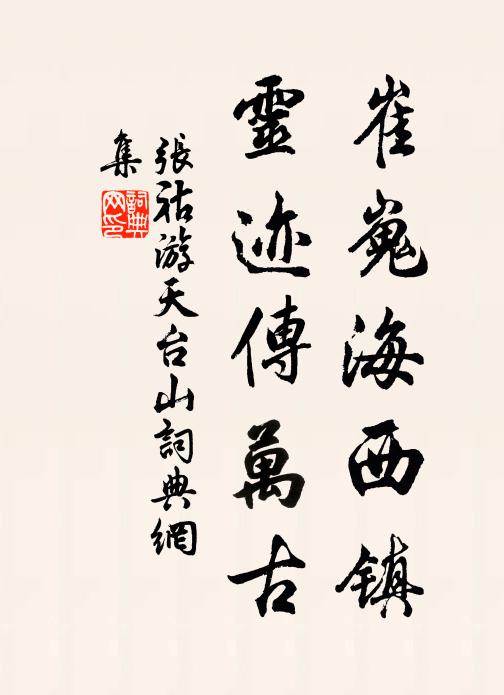 崔嵬海西镇
靈迹傳萬古
張祜游天台山詞典網
集
詞典網印